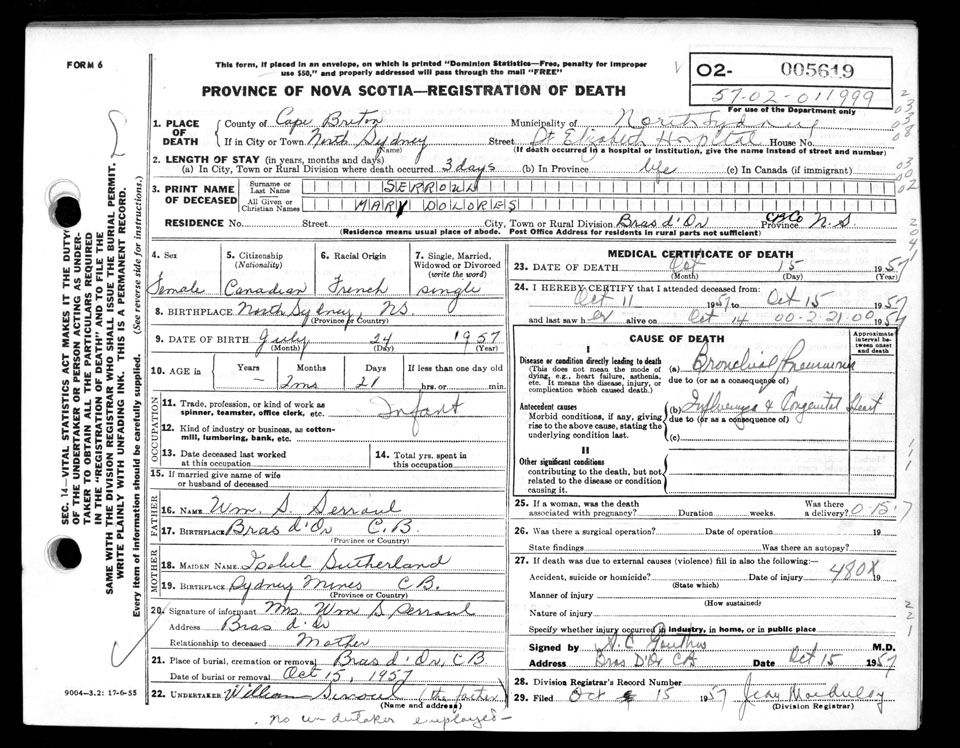 FORM 6
This form, if placed in an envelope, on which is printed "Dominion Statistics—Free, penalty for improper
use $50," and properly addressed will pass through the mail "FREE"
PROVINCE OF NOVA SCOTIA—REGISTRATION OF DEATH
02- 005619
57-02-011999
For use of the Department only
1. PLACE OF DEATH
County of Cape Breton Municipality of North Sydney
If in City or Town North Sydney Street St Elizabeth Hospital House No.
(Name) (If death occurred in a hospital or institution, give the name instead of street and number)
2. LENGTH OF STAY (in years, months and days)
(a) In City, Town or Rural Division where death occurred 3 days (b) In Province life (c) In Canada (if immigrant)
3. PRINT NAME OF DECEASED
Surname or Last Name SERROUL
All Given or Christian Names MARY DOLORES
RESIDENCE No. Street City, Town or Rural Division Bras d'Or CB Co Province N.S
(Residence means usual place of abode. Post Office Address for residents in rural parts not sufficient)
4. Sex Female
5. Citizenship (Nationality) Canadian
6. Racial Origin French
7. Single, Married, Widowed or Divorced (write the word) single
8. BIRTHPLACE North Sydney, NS.
(Province or Country)
9. DATE OF BIRTH July 24 1957
(Month) (Day) (Year)
10. AGE in Years Months Days If less than one day old
– 2ms 21 hrs. or min.
OCCUPATION
11. Trade, profession, or kind of work as spinner, teamster, office clerk, etc. Infant
12. Kind of industry or business, as cotton-mill, lumbering, bank, etc.
13. Date deceased last worked at this occupation
14. Total yrs. spent in this occupation
15. If married give name of wife or husband of deceased
FATHER
16. NAME Wm. S. Serroul
17. BIRTHPLACE Bras d'Or C.B.
(Province or Country)
MOTHER
18. MAIDEN NAME Isobel Sutherland
19. BIRTHPLACE Sydney Mines C B.
(Province or Country)
20. Signature of informant Mrs Wm S. Serroul
Address Bras d'Or
Relationship to deceased Mother
21. Place of burial, cremation or removal Bras d'Or, CB
Date of burial or removal Oct 15, 1957
22. UNDERTAKER William Serroul (the father)
(Name and address)
no undertaker employed—
9004—3.2: 17-6-55
MEDICAL CERTIFICATE OF DEATH
23. DATE OF DEATH Oct 15 1957
(Month) (Day) (Year)
24. I HEREBY CERTIFY that I attended deceased from:
Oct 11 1957 to Oct 15 1957
and last saw her alive on Oct 14 00-2-21-00 1957
CAUSE OF DEATH
Approximate interval between onset and death
I
Disease or condition directly leading to death
(This does not mean the mode of dying, e.g., heart failure, asthenia, etc. It means the disease, injury, or complication which caused death.)
(a) Bronchial Pneumonia
due to (or as a consequence of)
Antecedent causes
Morbid conditions, if any, giving rise to the above cause, stating the underlying condition last.
(b) Influenza & Congenital Heart
due to (or as a consequence of)
(c)
II
Other significant conditions
contributing to the death, but not related to the disease or condition causing it.
25. If a woman, was the death associated with pregnancy? Duration weeks. Was there a delivery? 0-15-7
26. Was there a surgical operation? Date of operation 19
State findings Was there an autopsy?
27. If death was due to external causes (violence) fill in also the following:—
Accident, suicide or homicide? Date of injury 480X 19
(State which)
Manner of injury
(How sustained)
Nature of injury
Specify whether injury occurred in industry, in home, or in public place
Signed by M.D.
Address Bras D'Or CB Date Oct 15 1957
28. Division Registrar's Record Number
29. Filed Oct 15 1957 Jean
(Division Registrar)
SEC. 14—VITAL STATISTICS ACT MAKES IT THE DUTY
OF THE UNDERTAKER OR PERSON ACTING AS UNDER-
TAKER TO OBTAIN ALL THE PARTICULARS REQUIRED
IN THE "REGISTRATION OF DEATH" AND TO FILE THE
SAME WITH THE DIVISION REGISTRAR WHO SHALL ISSUE THE BURIAL PERMIT.
WRITE PLAINLY WITH UNFADING INK. THIS IS A PERMANENT RECORD.
Every item of information should be carefully supplied. (See reverse side for instructions.)